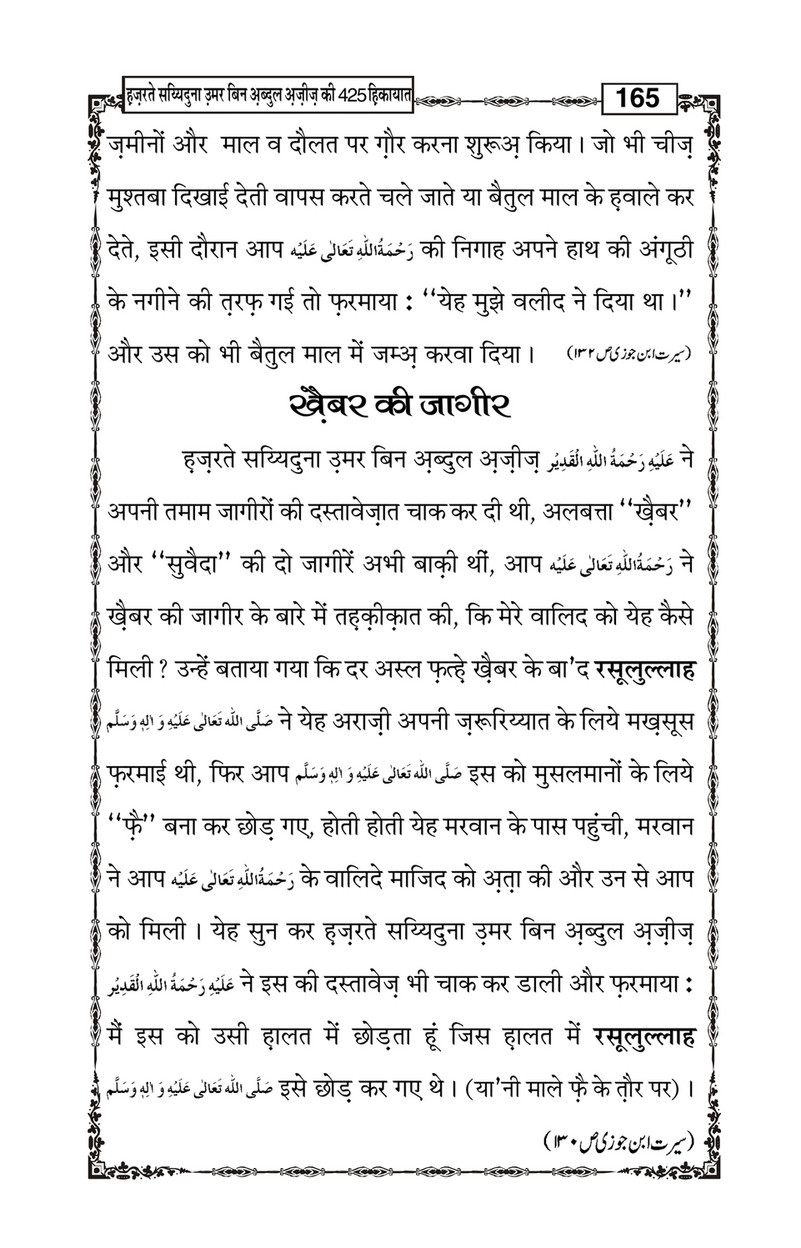 हज़रते सय्यिदुना उ़मर बिन अ़ब्दुल अ़ज़ीज़ की 425 हिकायात
165
ज़मीनों और माल व दौलत पर ग़ौर करना शुरूअ़ किया। जो भी चीज़
मुश्तबा दिखाई देती वापस करते चले जाते या बैतुल माल के ह़वाले कर
देते, इसी दौरान आप رَحْمَةُ اللهِ تَعَالٰى عَلَيْه की निगाह अपने हाथ की अंगूठी
के नगीने की त़रफ़ गई तो फ़रमाया : ‘‘येह मुझे वलीद ने दिया था।’’
और उस को भी बैतुल माल में जम्अ़ करवा दिया। (سیرت ابن جوزی ص ۱۳۲)
ख़ैबर की जागीर
ह़ज़रते सय्यिदुना उ़मर बिन अ़ब्दुल अ़ज़ीज़ عَلَيْهِ رَحْمَةُ اللهِ الْقَدِيْر ने
अपनी तमाम जागीरों की दस्तावेज़ात चाक कर दी थी, अलबत्ता ‘‘ख़ैबर’’
और ‘‘सुवैदा’’ की दो जागीरें अभी बाक़ी थीं, आप رَحْمَةُ اللهِ تَعَالٰى عَلَيْه ने
ख़ैबर की जागीर के बारे में तह़क़ीक़ात की, कि मेरे वालिद को येह कैसे
मिली ? उन्हें बताया गया कि दर अस्ल फ़त्ह़े ख़ैबर के बा’द रसूलुल्लाह
صَلَّى الله تَعَالٰى عَلَيْهِ وَ اٰلِهٖ وَسَلَّم ने येह अराज़ी अपनी ज़रूरिय्यात के लिये मख़्सूस
फ़रमाई थी, फिर आप صَلَّى الله تَعَالٰى عَلَيْهِ وَ اٰلِهٖ وَسَلَّم इस को मुसलमानों के लिये
‘‘फ़ै’’ बना कर छोड़ गए, होती होती येह मरवान के पास पहुंची, मरवान
ने आप رَحْمَةُ اللهِ تَعَالٰى عَلَيْه के वालिदे माजिद को अ़त़ा की और उन से आप
को मिली। येह सुन कर ह़ज़रते सय्यिदुना उ़मर बिन अ़ब्दुल अ़ज़ीज़
عَلَيْهِ رَحْمَةُ اللهِ الْقَدِيْر ने इस की दस्तावेज़ भी चाक कर डाली और फ़रमाया :
मैं इस को उसी ह़ालत में छोड़ता हूं जिस ह़ालत में रसूलुल्लाह
صَلَّى الله تَعَالٰى عَلَيْهِ وَ اٰلِهٖ وَسَلَّم इसे छोड़ कर गए थे। (या’नी माले फ़ै के त़ौर पर)।
(سیرت ابن جوزی ص ۱۳۰)